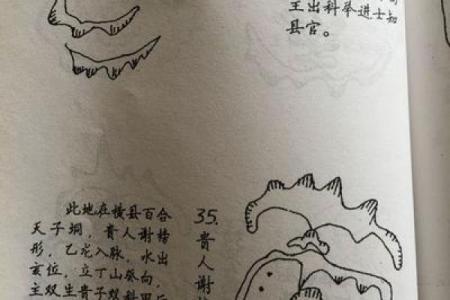 王出科举进士知
县官。
此地在横县百合
天子垌，贵人谢榜
形，乙龙入脉，水出
亥位，立丁山癸向，
主双生贵子双科甲
35.
贵人谢